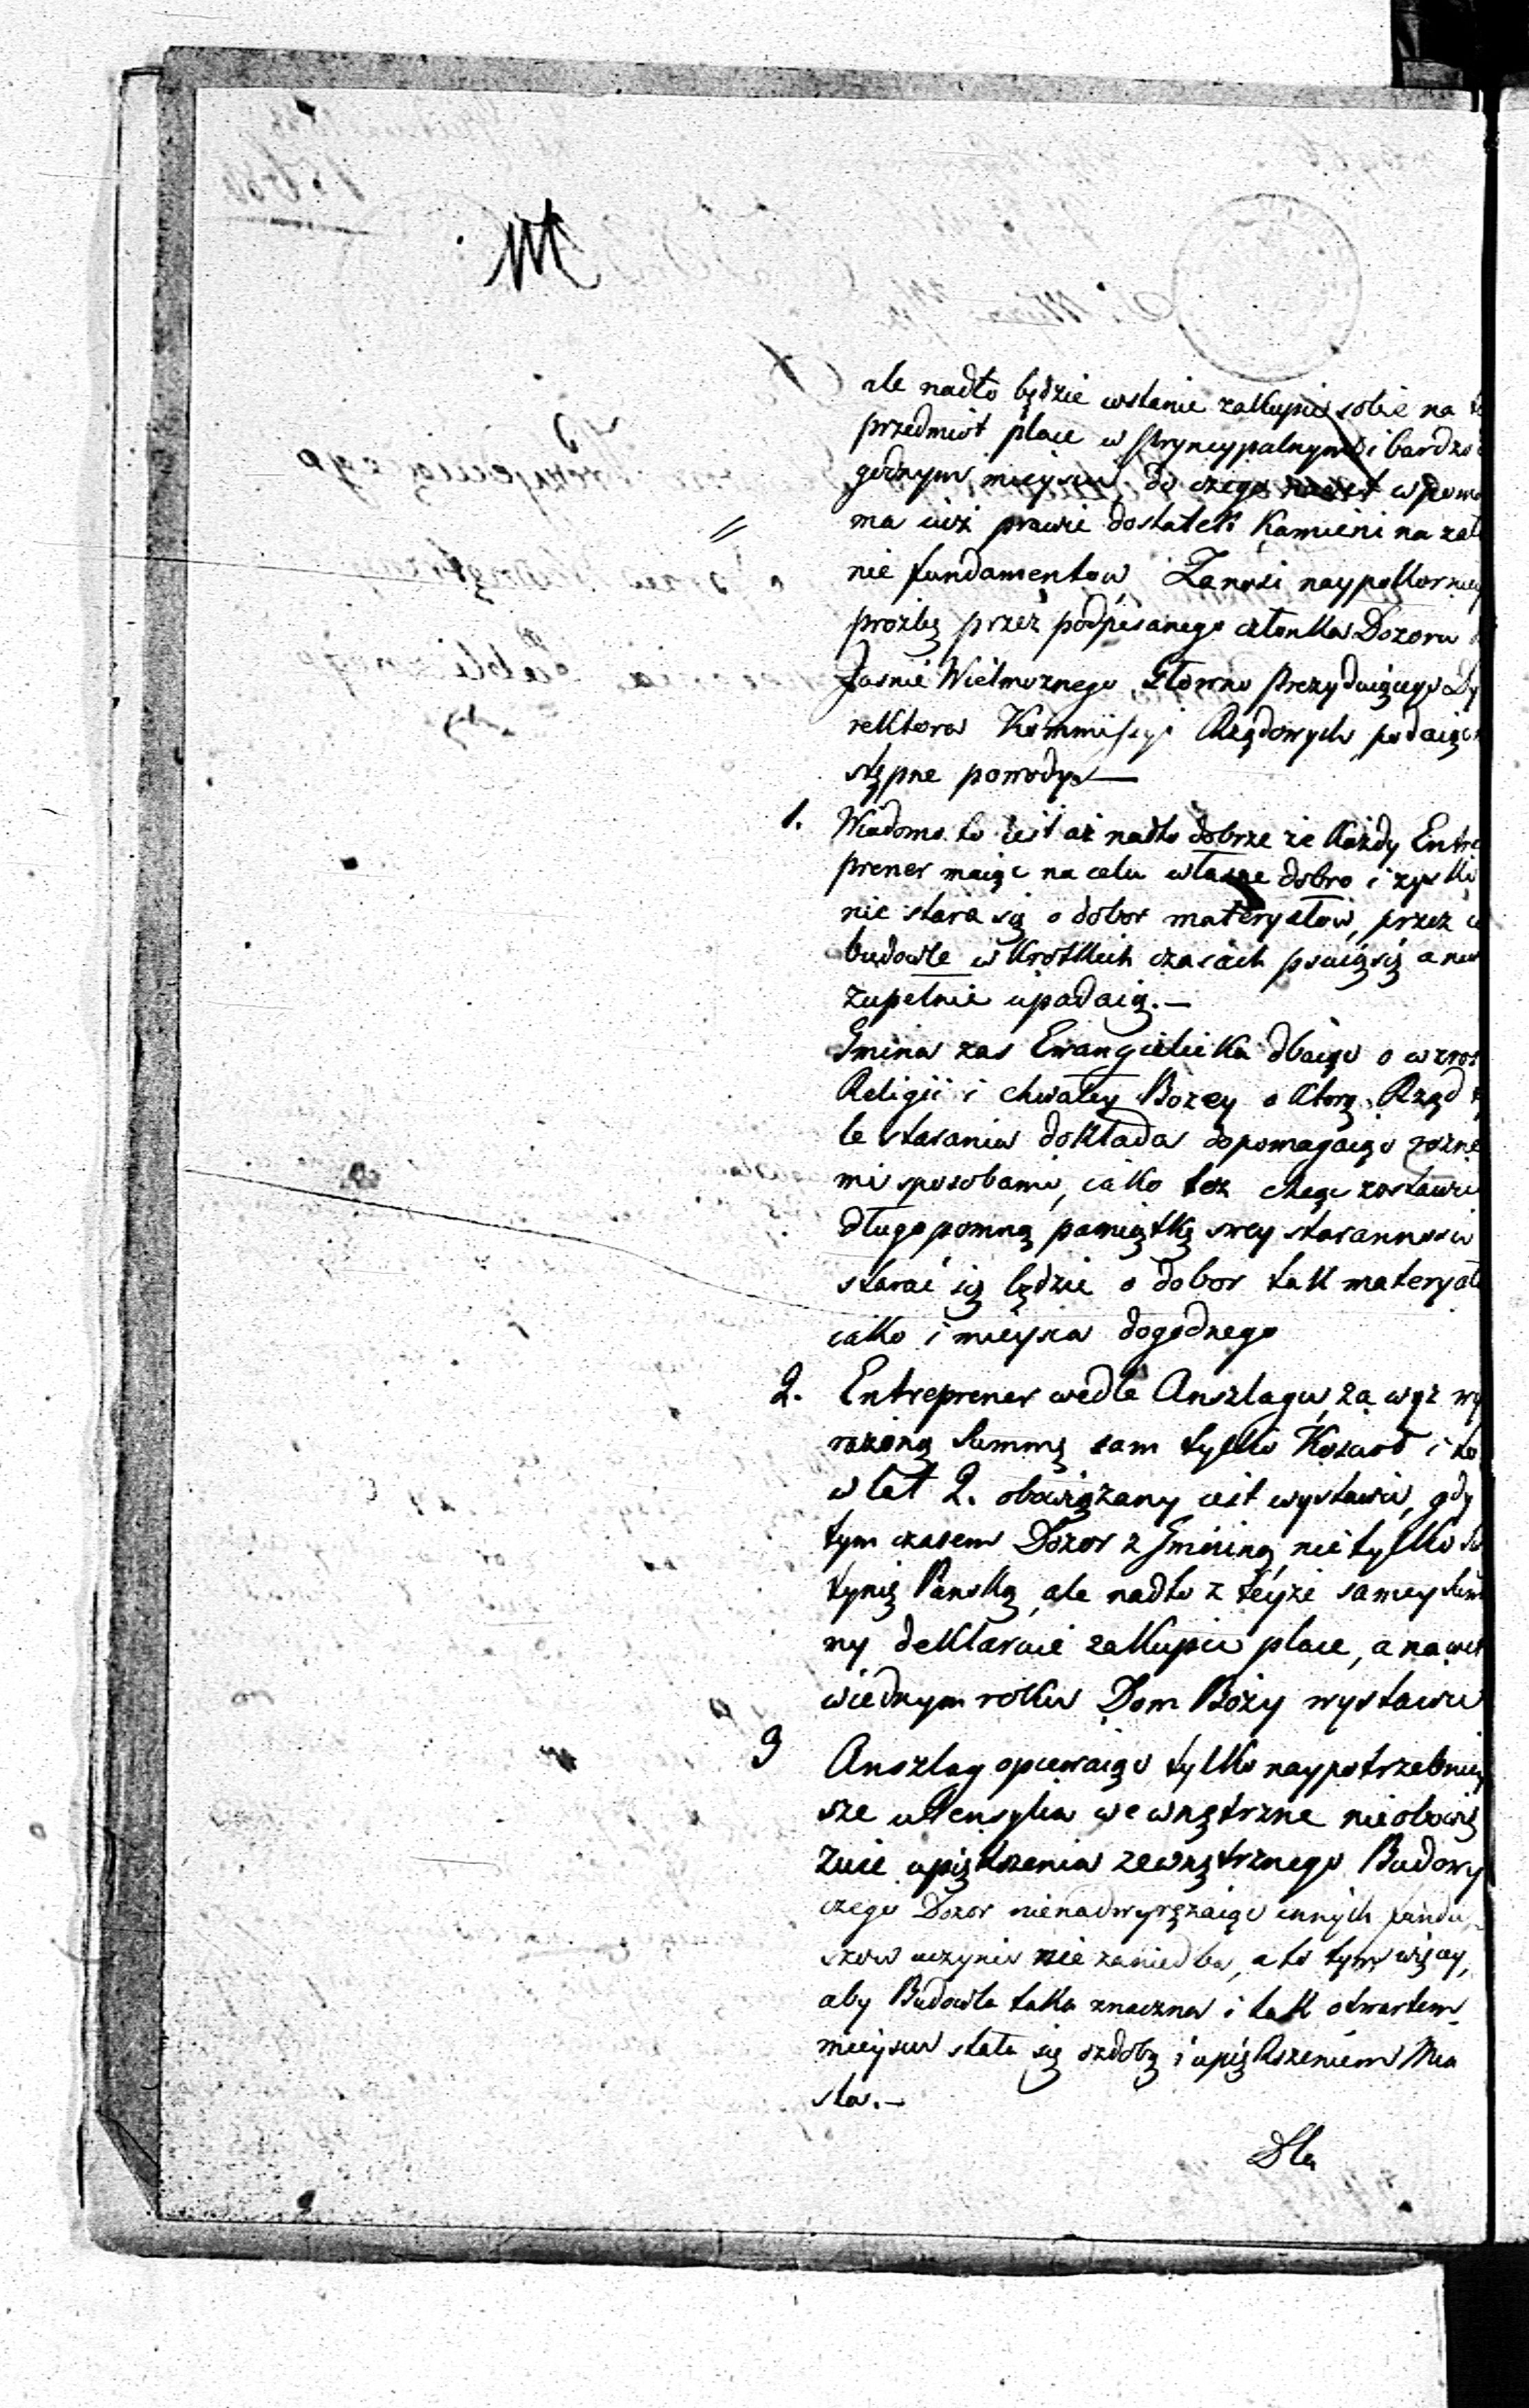 ale nadto będzie wstanie zakupić sobie na
przedmiot place w pryncypalnym i bardzo
godnym mieyscu, do czego nawet
ma iuż prawie dostatek Kamieni na
nie fundamentow, Zanosi naypokorniey
prozbę przez podpisanego członka Dozoru
Jasnie Wielmoznego Głowno Prezyduiącego Dy
rektora Kommissyi Rządowych podaiąc
stępne powody. —
1. Wiadomo to iest aż nadto dobrze ze Każdy Entre
prener maiąc na celu własne dobro i zyski
nie stara się o dobor materyałow, przez
budowle w Krotkich czasach psuią się a
zupełnie upadaią. —
Gmina zas Ewangielicka dbaiąc o wzrost
Religii i chwały Bozey o Ktorą Rząd
le starania dokłada dopomagaiąc rozne
mi sposobami, iako tez chcąc zostawić
długo pomną pamiątkę swey staranności
starać się będzie o dobor tak materyał
iako i mieysca dogodnego
2. Entreprener wedle Anszlagu, za wyz wy
rażoną Summę sam tylko Kościoł i to
w let 2. obowiązany iest wystawić, gdy
tym czasem Dozor z Gminą nie tylko
tynię Panską, ale nadto z teyże samey Sum
my deklaruie zakupić place, a nawet
wiednym roku Dom Boży wystawić
3 Anszlag opiewaiąc tylko naypotrzebniey
sze utensylia wewnętrzne nieobowią
zuie upiększenia zewnętrznego Budowy
czego Dozor nienadwyrężaiąc innych fundu
szow uczynić nie zaniedba, a to tym więcy,
aby Budowla taka znaczna i tak otwartem
mieyscu stała się ozdobą i upiększeniem Mia
sta. —
Dla